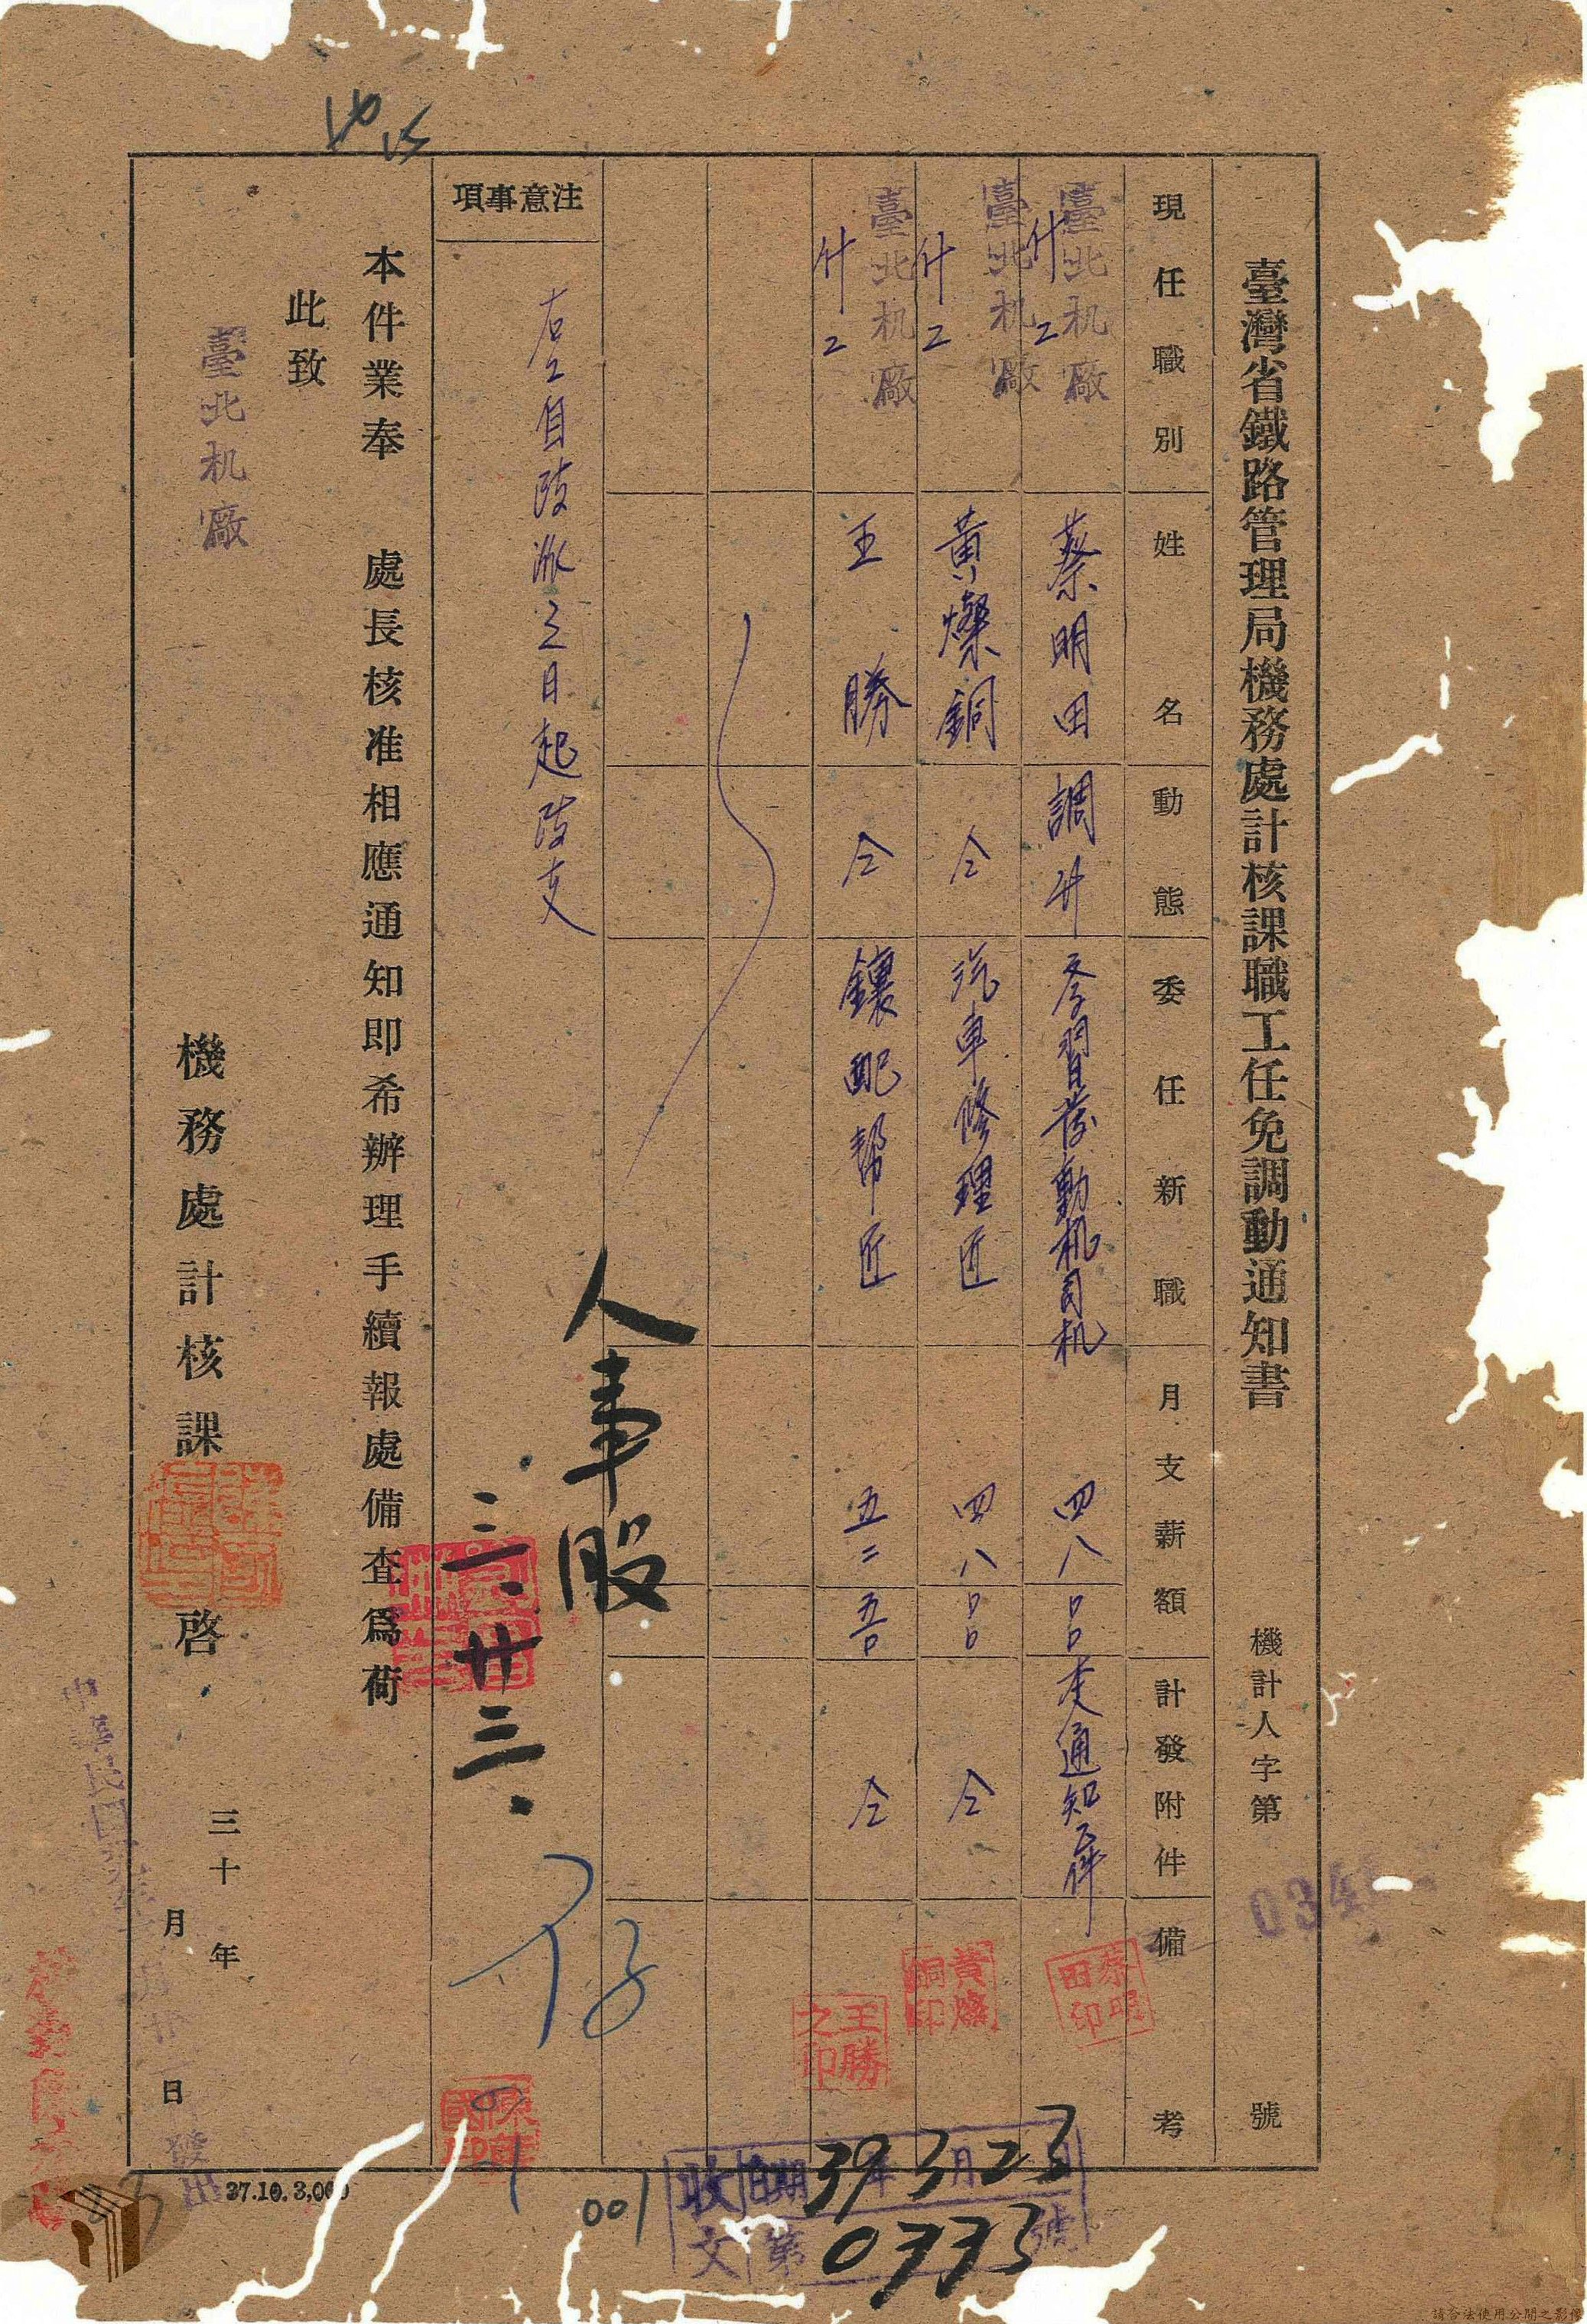 臺灣省鐵路管理局機務處計核課職工任免調動通知書
機計人字第 號
034
現任職別 姓名 動態 委任新職 月支薪額 計發附件 備考
臺北机廠 什工 蔡明田 調升 學習發動机司机 四八 通知
蔡明田印
臺北机廠 什工 黃燦銅 仝 汽車修理匠 四八 仝
黃燦銅印
臺北机廠 什工 王勝 仝 鑲配幫匠 五二 仝
王勝之印
注意事項
右工自改派之日起改支
人事股
三.廿三.
本件業奉 處長核准相應通知即希辦理手續報處備查爲荷
此致
臺北机廠
機務處計核課 啓
三十 年 月 日
中華民國
發出
37.10.3,000
001
收文 日期 39年3月23日
第0333號
請合法使用公開之影像